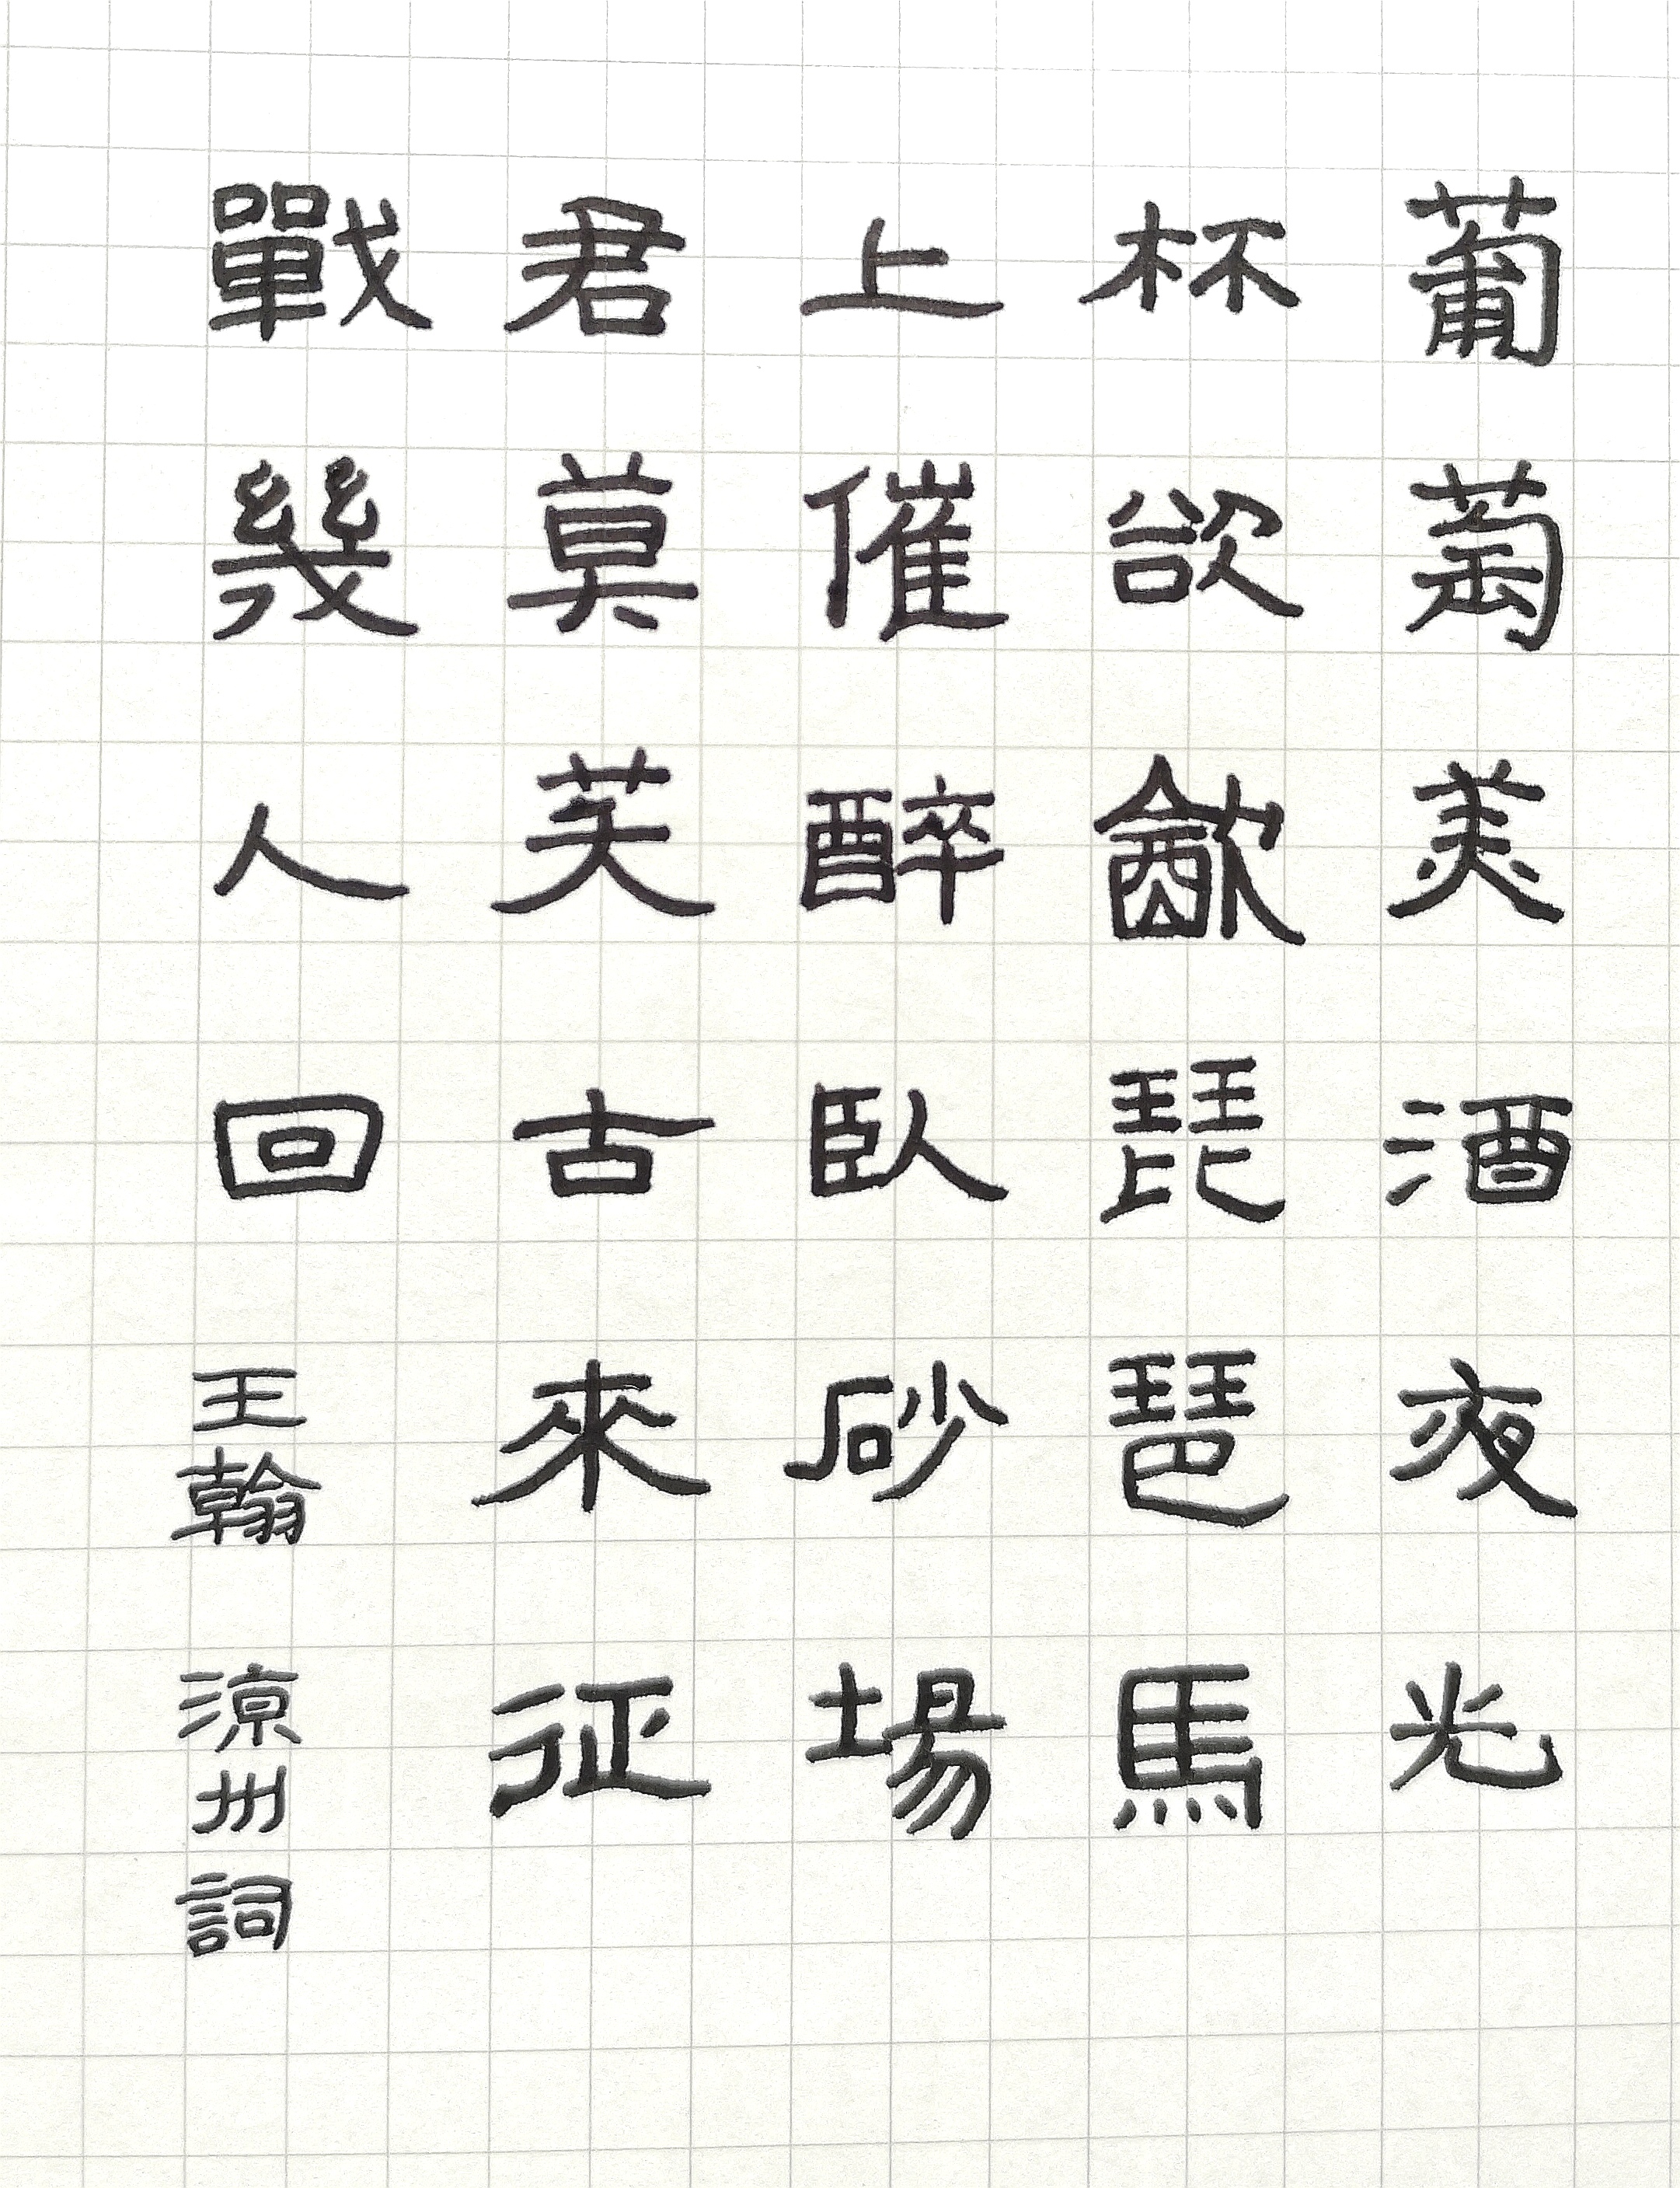 葡萄美酒夜光
杯欲飲琵琶馬
上催醉臥砂場
君莫芙古來征
戰幾人回 王翰 涼州詞